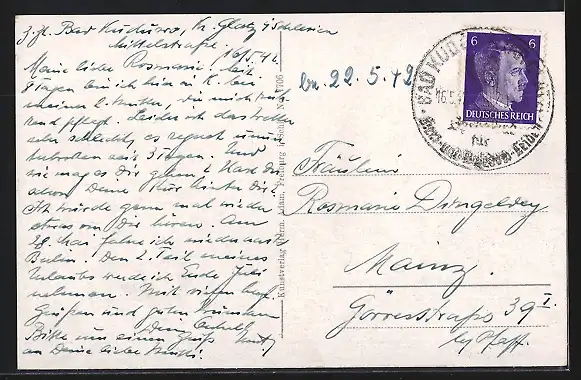 z. Zt. Bad Kudowa, Kr. Glatz i/Schlesien
Mittelstraße. 16/5.42.
Meine liebe Rosmarie! Seit
8 Tagen bin ich hier in K. bei
meiner l. Mutter, die mich
pflegt. Leider ist das Wetter
sehr schlecht, es regnet
seit 3 Tagen. Und
wie mag es Dir gehen? Hast Du
schon Deine Kur hinter Dir?
Ich würde gern mal wieder
etwas von Dir hören. Am
28. Mai fahre ich wieder nach
Berlin. Den 2. Teil meines
Urlaubs werde ich Ende Juni
nehmen. Mit vielen herzl.
Grüßen und guten Wünschen
Dein
Bitte um einen Gruß
an Deine liebe Mutti!
Kunstverlag
bn. 22.5.42
BAD KUDOWA
16.5.
für
Herz-
6 6
DEUTSCHES REICH
Fräulein
Rosmarie Dingeldey
Mainz.
Görresstraße 39 I.
b/ Pfaff.